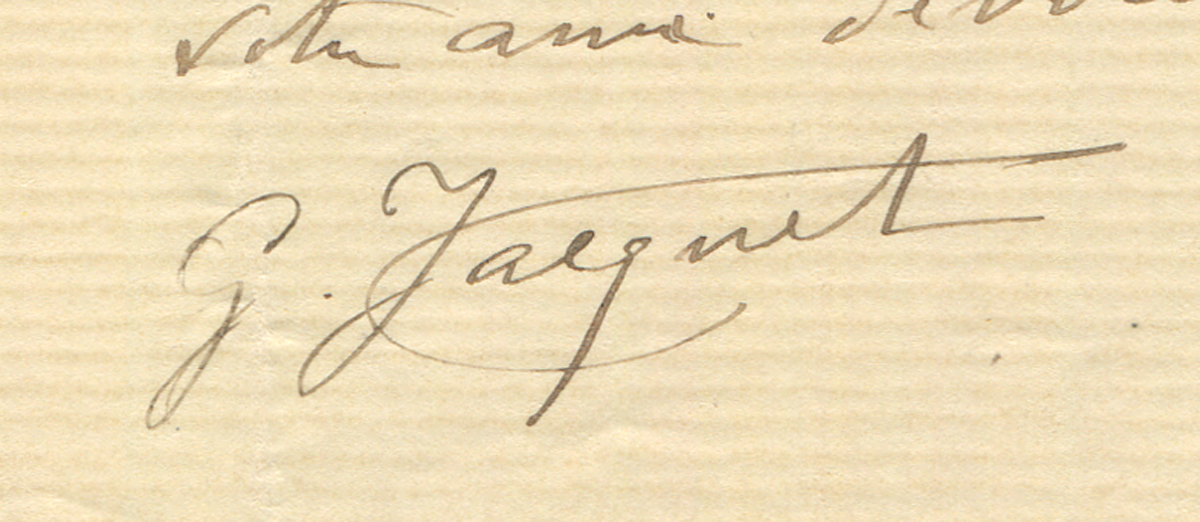 votre ami dévoué
G. Jacquet